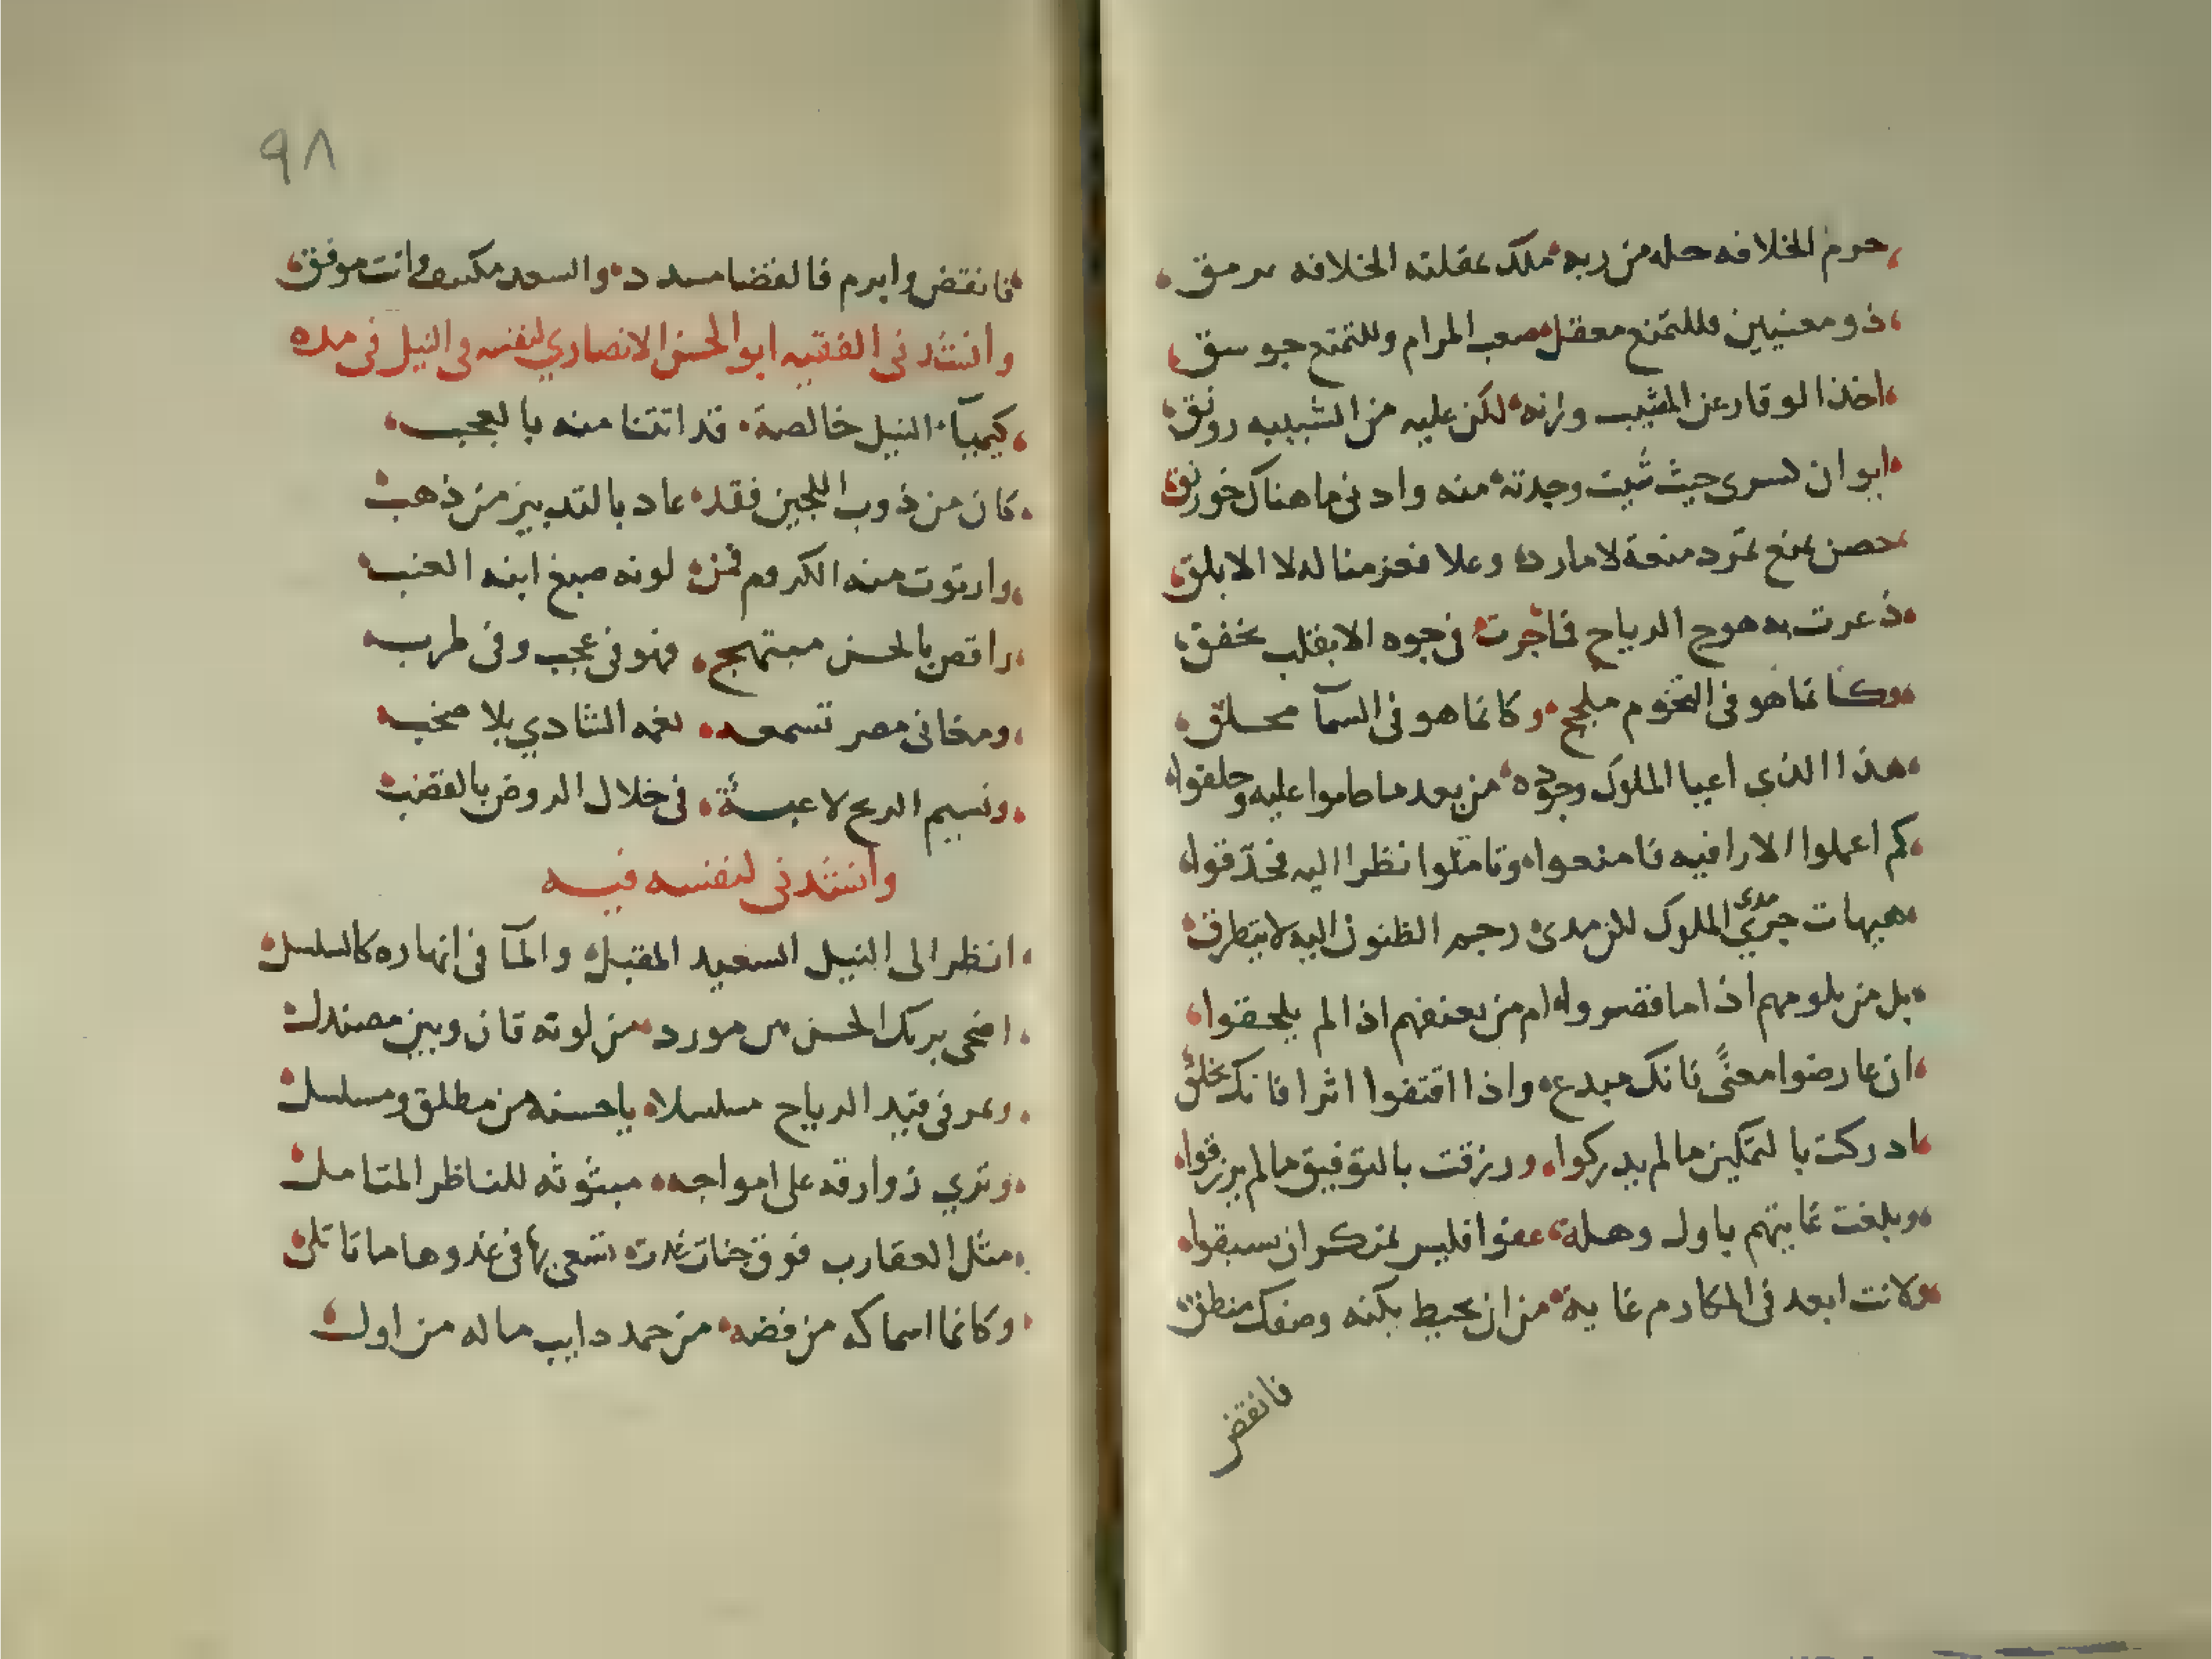 حرم الخلافه حله من ربه ملك عقلته الخلافه يرمق
ذو معنيين فللتمنع معقل صعب المرام وللتمتع جوسق
اخذ الوقار عن المشيب وزانه لكن عليه من الشبيبه رونق
ايوان كسرى حيث شيت وجدته منه وادنى ما هناك خورنق
حصن تمنع تمرد منعة لا مارد وعلا فعز منالا لا الابلق
ذعرت به هوج الرياح فاجرت في جوه الا بقلب يخفق
وكانما هو في التخوم ملجج وكانما هو في السمآ محلق
هذا الذي اعيا الملوك وجوده من بعد ما حاموا عليه وحلقوا
كم اعملوا الارا فيه فامنحوا وتاملوا نظرا اليه فحدقوا
هيهات جري الملوك لمدى رجم الظنون اليه لا يتطرف
بل من يلومهم اذا ما قصروا ام من يعنفهم اذا لم يلحقوا
ان عارضوا معنًى فانك مبدع واذا اقتفوا اثرا فانك تخلق
ادركت بالتمكين ما لم يدركوا ورزقت بالتوفيق ما لم يرزقوا
وبلغت غايتهم باول وهلة عفوا فليس بمنكر ان يسبقوا
ولانت ابعد في المكارم غاية من ان يحيط بكنه وصفك منطق
فانقض
٩٨
فانقض وابرم فالقضا مسدد والسعد مكنف وانت موفق
وانشدني الفقيه ابو الحسن الانصاري لنفسه في النيل في مده
كيميآ النيل خالصة قد اتتنا منه بالعجب
كان من ذوب اللجين فقد عاد بالتدبير من ذهب
وارتوت منه الكروم فمن لونه صبغ ابنه العنب
راقص بالحسن مبتهج فهو في عجب وفي طرب
ومغاني مصر تسمعه نغمه الشادي بلا صخب
ونسيم الريح لاعبة في خلال الروض بالقضب
وانشدني لنفسه فيه
انظر الى النيل السعيد المقبل والمآ في انهاره كالسلسل
اضحى يريك الحسن من مورد من لونه قان وبين مصندل
ويمر في قيد الرياح مسلسلا يا حسنه من مطلق ومسلسل
وتري زوارقه على امواجه مبثوثه للناظر المتامل
مثل العقارب فوق حيات غدت تسعى بها في غدوها ما تاتلى
وكانما اسماكه من فضه من جمد دايب ماله من اول